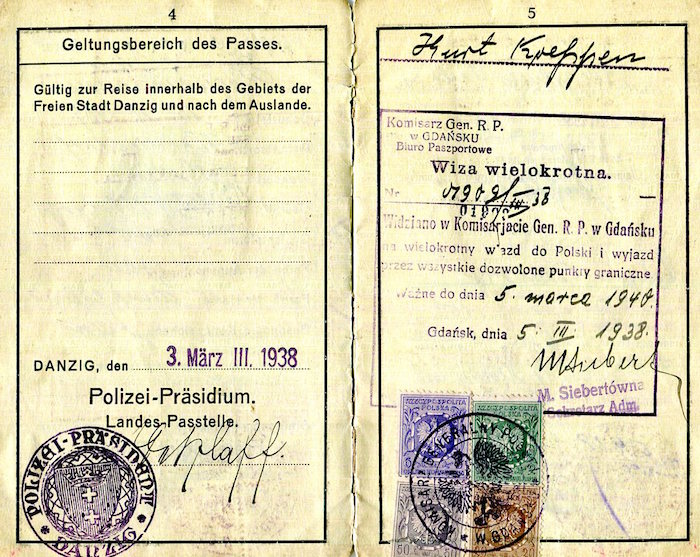 4
Geltungsbereich des Passes.
Gültig zur Reise innerhalb des Gebiets der
Freien Stadt Danzig und nach dem Auslande.
DANZIG, den 3. März III. 1938
Polizei-Präsidium.
Landes-Passtelle.
POLIZEI-PRÄSIDIUM
* DANZIG *
5
Kurt Koeppen
Komisarz Gen. R. P.
w GDAŃSKU
Biuro Paszportowe
Wiza wielokrotna.
Nr.
Widziano w Komisarjacie Gen. R. P. w Gdańsku
na wielokrotny wjazd do Polski i wyjazd
przez wszystkie dozwolone punkty graniczne.
Ważne do dnia 5. marca 1940.
Gdańsk, dnia 5. III. 1938.
M. Siebertówna
Sekretarz Adm.
RZECZPOSPOLITA
POLSKA
RZECZPOSPOLITA
POLSKA